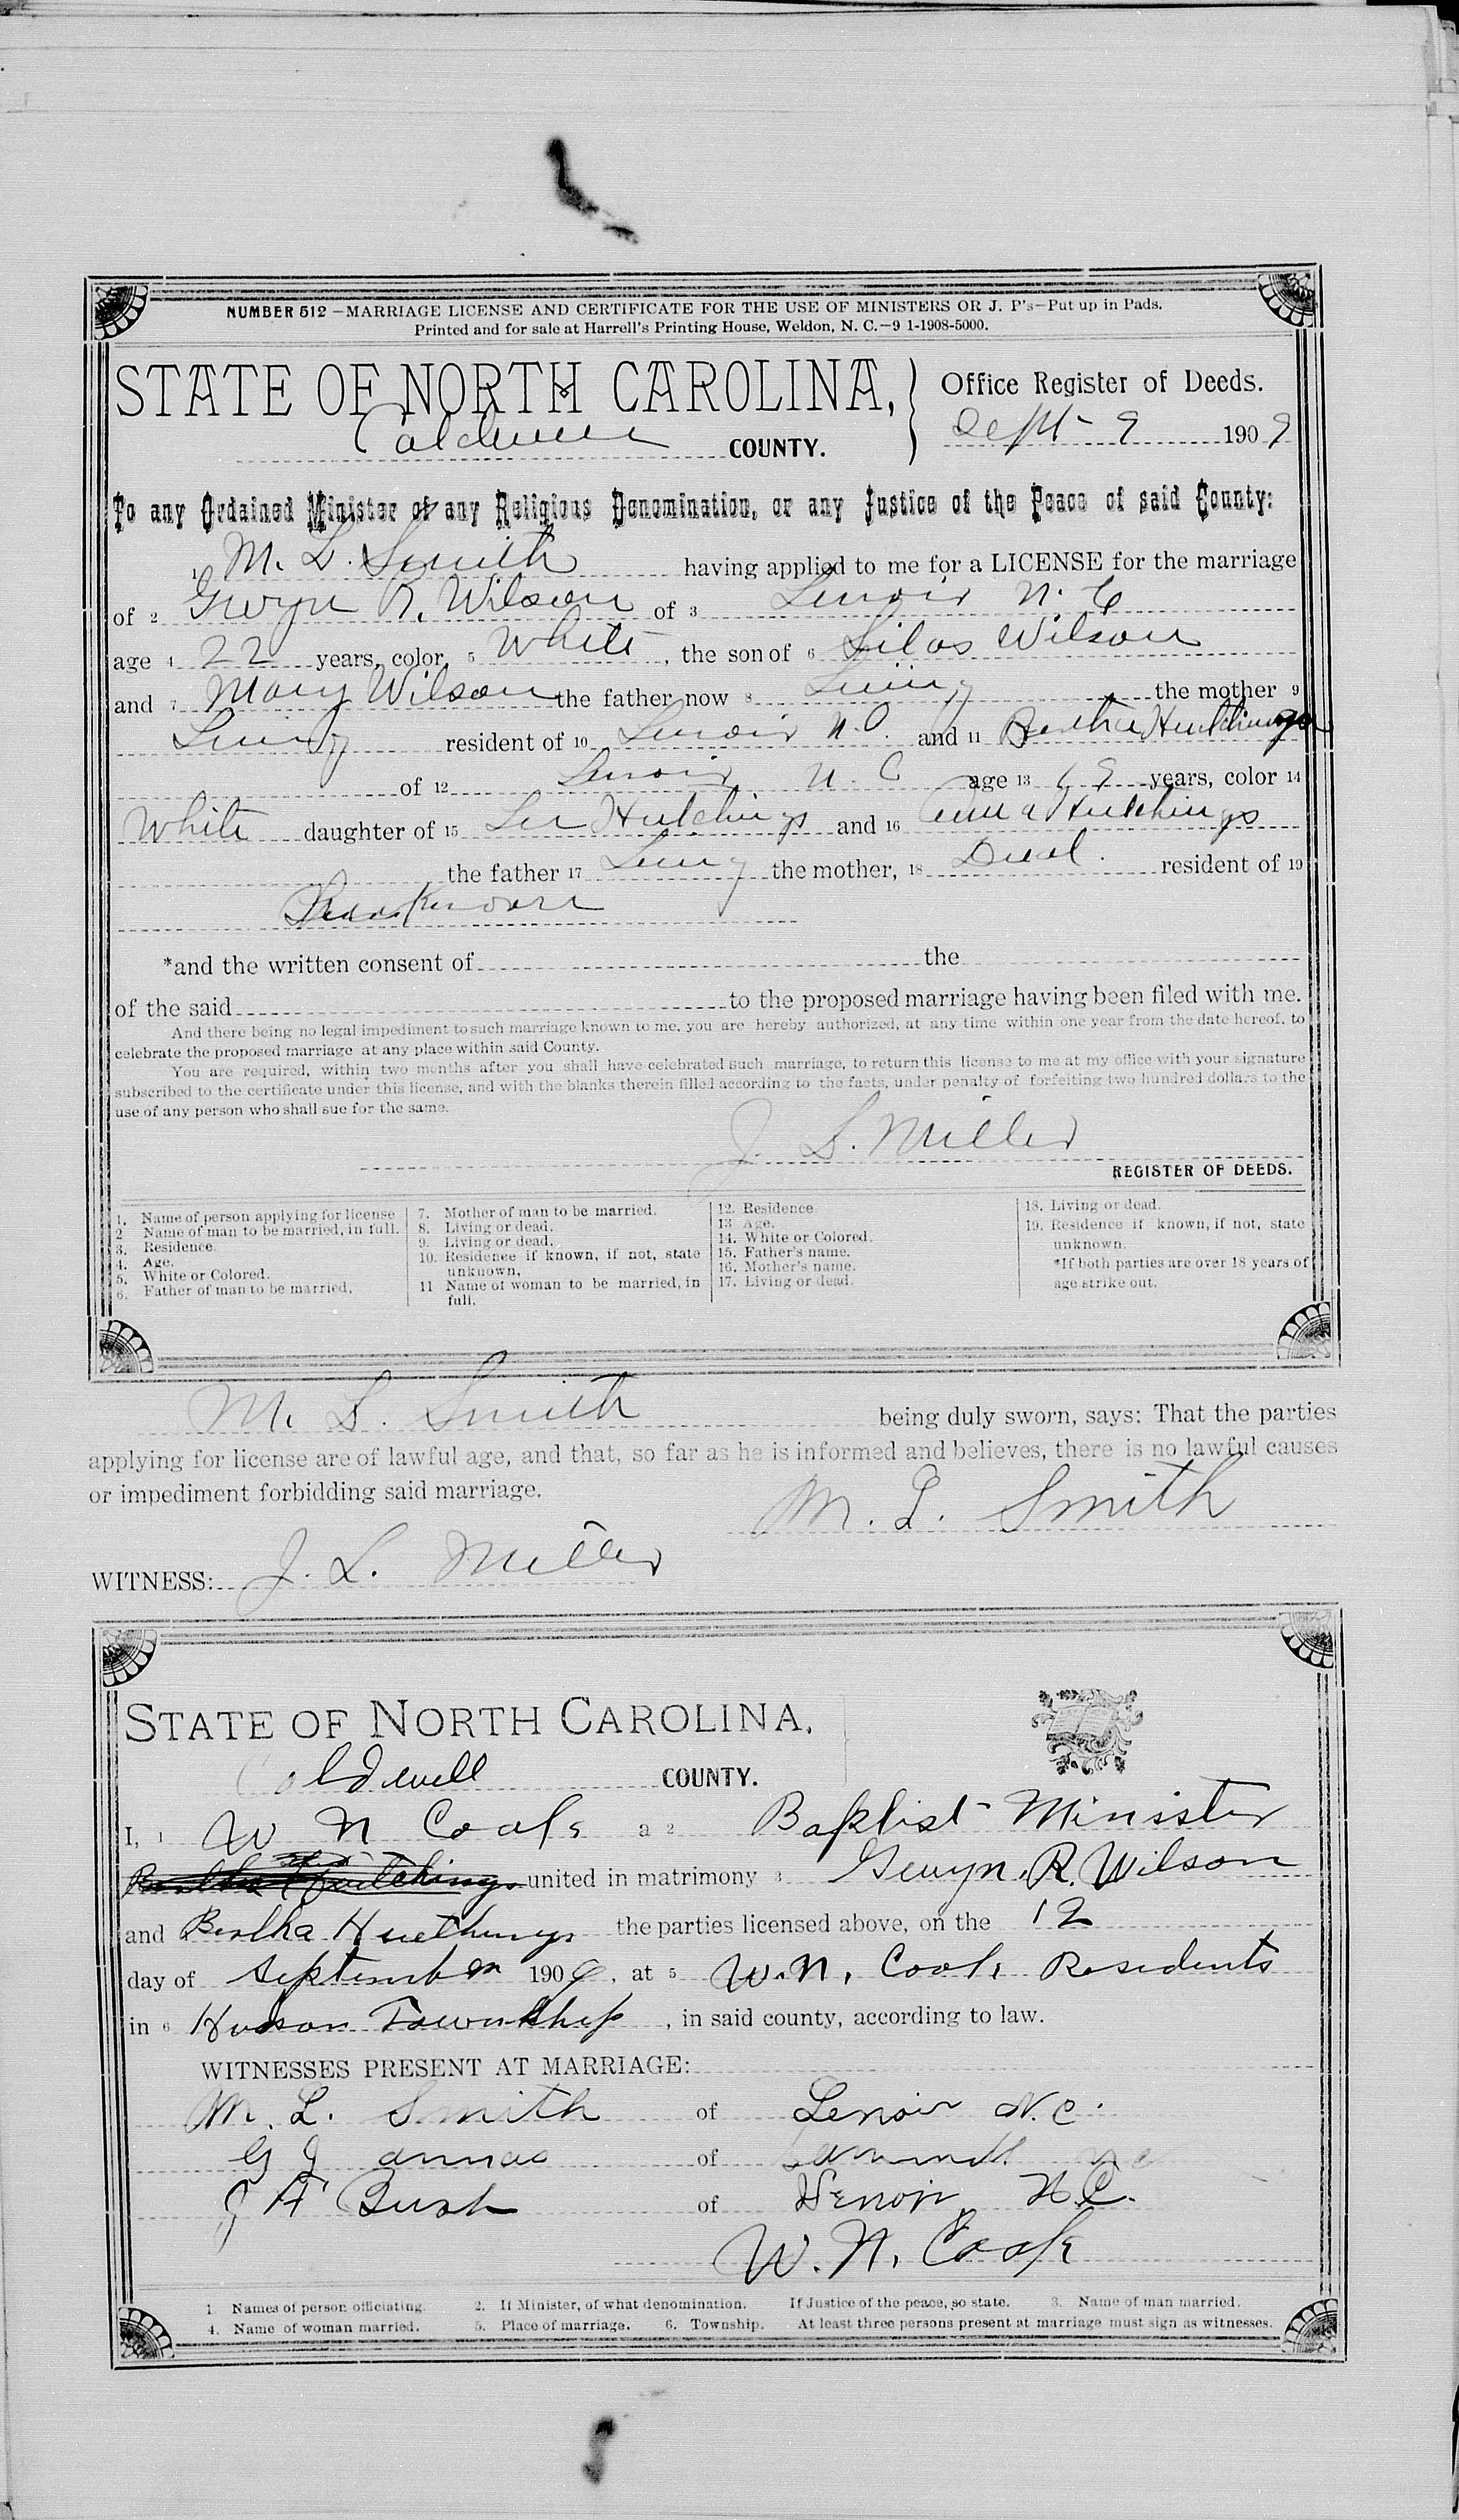 NUMBER 512 —MARRIAGE LICENSE AND CERTIFICATE FOR THE USE OF MINISTERS OR J. P's—Put up in Pads.
Printed and for sale at Harrell's Printing House, Weldon, N. C.—9 1-1908-5000.
STATE OF NORTH CAROLINA, Office Register of Deeds.
Caldwell COUNTY. Sept 9 1909
To any Ordained Minister of any Religious Denomination, or any Justice of the Peace of said County:
1 M. L. Smith having applied to me for a LICENSE for the marriage
of 2 Gwyn R. Wilson of 3 Lenoir N. C
age 4 22 years, color, 5 White, the son of 6 Silas Wilson
and 7 Mary Wilson the father now 8 Living the mother 9
Living resident of 10 Lenoir N.C. and 11 Bertha Hutchings
of 12 Lenoir N. C age 13 years, color 14
White daughter of 15 Lee Hutchings and 16 Hutchings
the father 17 Living the mother, 18 Dead. resident of 19
*and the written consent of the
of the said to the proposed marriage having been filed with me.
And there being no legal impediment to such marriage known to me, you are hereby authorized, at any time within one year from the date hereof, to
celebrate the proposed marriage at any place within said County.
You are required, within two months after you shall have celebrated such marriage, to return this license to me at my office with your signature
subscribed to the certificate under this license, and with the blanks therein filled according to the facts, under penalty of forfeiting two hundred dollars to the
use of any person who shall sue for the same.
J. L. Miller
REGISTER OF DEEDS.
1. Name of person applying for license
2 Name of man to be married, in full.
3. Residence.
4. Age.
5. White or Colored.
6. Father of man to be married.
7. Mother of man to be married.
8. Living or dead.
9. Living or dead.
10. Residence if known, if not, state
unknown.
11 Name of woman to be married, in
full.
12. Residence.
13 Age.
14. White or Colored.
15. Father's name.
16. Mother's name.
17. Living or dead.
18. Living or dead.
19. Residence if known, if not, state
unknown.
*If both parties are over 18 years of
age strike out.
M. L. Smith being duly sworn, says: That the parties
applying for license are of lawful age, and that, so far as he is informed and believes, there is no lawful causes
or impediment forbidding said marriage.
M. L. Smith
WITNESS: J. L. Miller
STATE OF NORTH CAROLINA,
Caldwell COUNTY.
I, 1 W N Cook a 2 Baptist Minister
Bertha Hutchings united in matrimony 3 Gwyn. R. Wilson
and Bertha Hutchings the parties licensed above, on the 12
day of September 1909, at 5 W. N. Cook Residents
in 6 Hudson Township, in said county, according to law.
WITNESSES PRESENT AT MARRIAGE:
M. L. Smith of Lenoir N.C.
G J annas of
Bush of Lenoir N.C.
W. N. Cook
1 Names of person officiating. 2. If Minister, of what denomination. If Justice of the peace, so state. 3. Name of man married.
4. Name of woman married. 5. Place of marriage. 6. Township. At least three persons present at marriage must sign as witnesses.